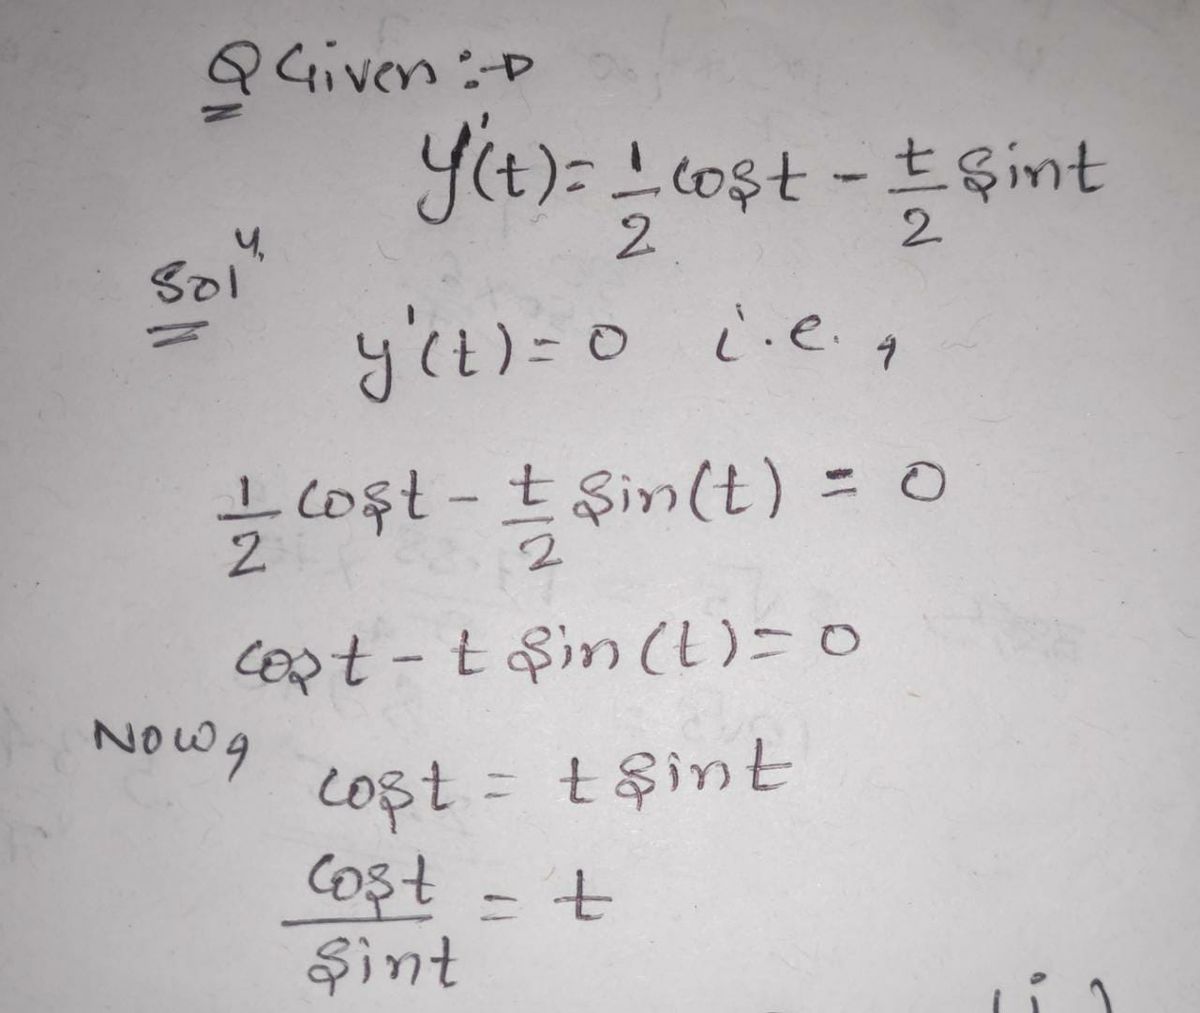 Q Given :→
y'(t) = 1/2 cost - t/2 sint
Solⁿ,
y'(t) = 0 i.e.,
1/2 cost - t/2 sin(t) = 0
cost - t sin(t) = 0
Now,
cost = t sint
cost/sint = t